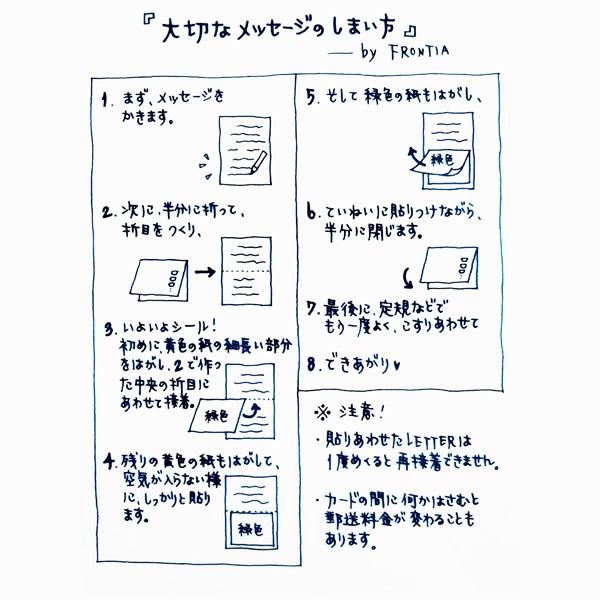 『大切なメッセージのしまい方』
― by FRONTIA
1. まず、メッセージを
かきます。
2. 次に、半分に折って、
折目をつくり、
3. いよいよシール!
初めに、黄色の紙の細長い部分
をはがし、2で作っ
た中央の折目に
あわせて接着。
緑色
4. 残りの黄色の紙もはがして、
空気が入らない様
に、しっかりと貼り
ます。
緑色
5. そして緑色の紙もはがし、
緑色
6. ていねいに貼りつけながら、
半分に閉じます。
7. 最後に、定規などで
もう一度よく、こすりあわせて
8. できあがり♥
※ 注意!
・貼りあわせたLETTERは
1度めくると再接着できません。
・カードの間に何かはさむと
郵送料金が変わることも
あります。